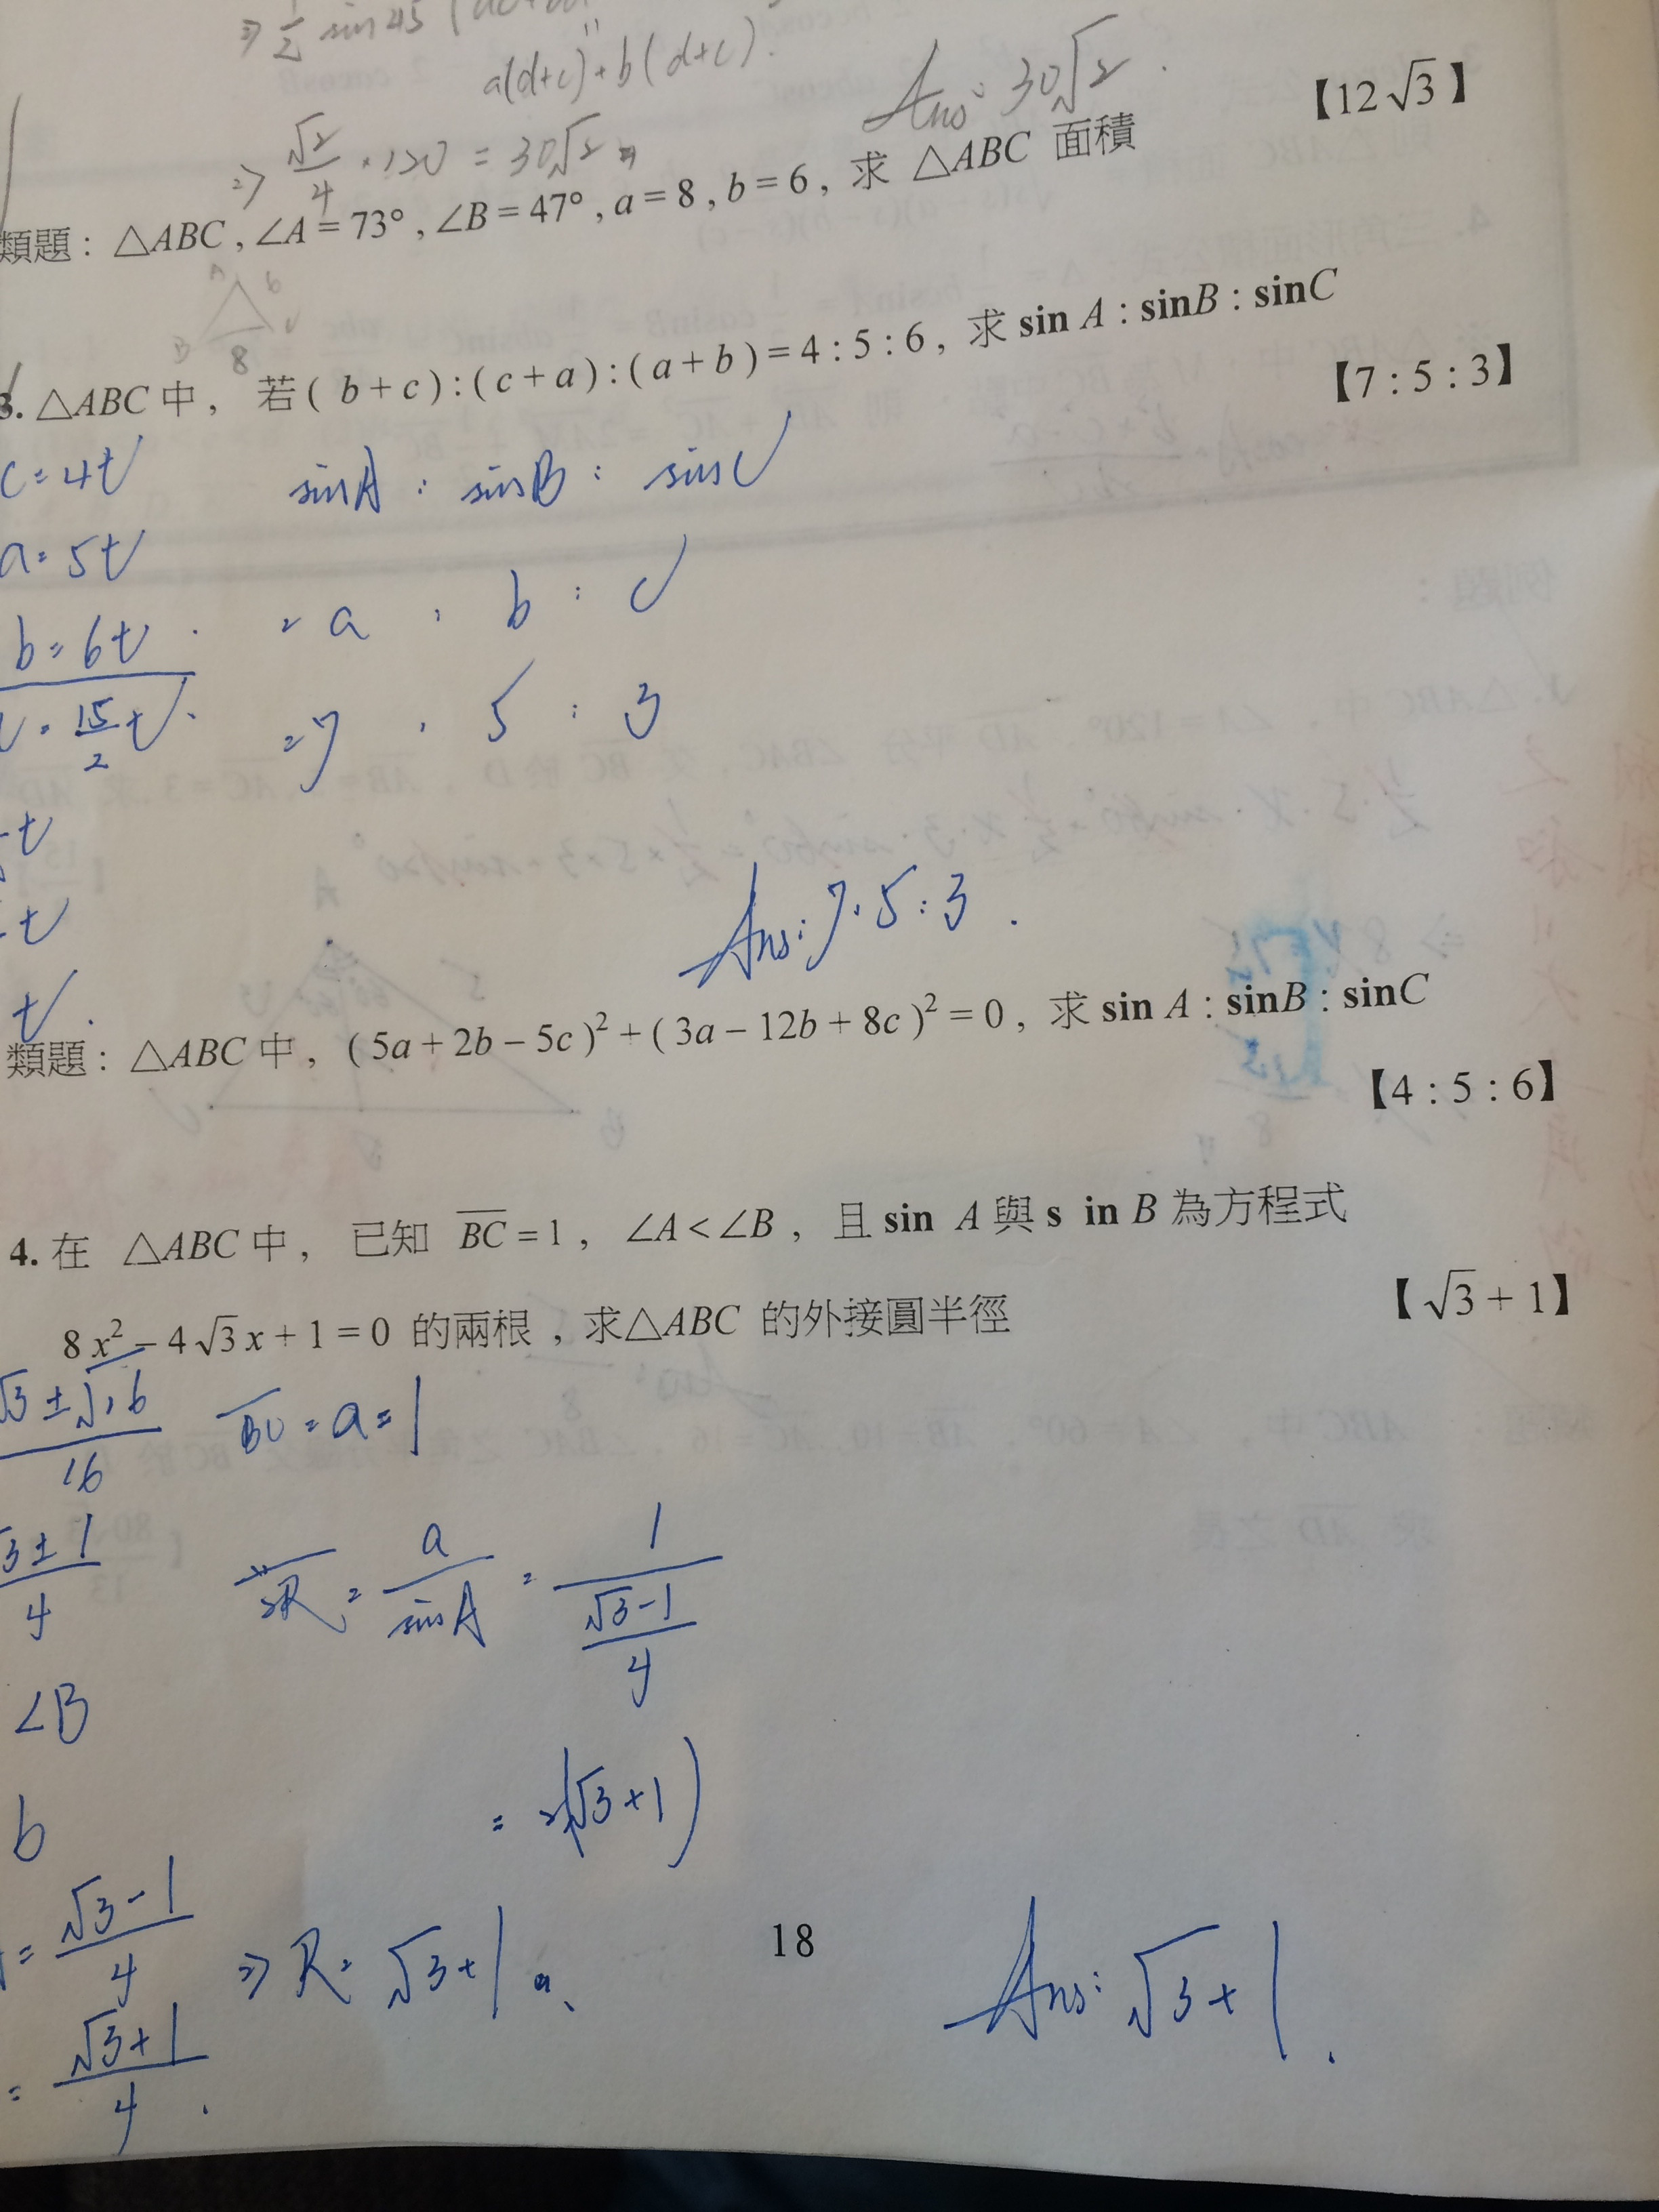 ⇒ 1/2 sin45 (
a(d+c)+b(d+c).
⇒ √2/4 · 120 = 30√2
Ans: 30√2.
【12√3】
類題：△ABC , ∠A = 73° , ∠B = 47° , a = 8 , b = 6 , 求 △ABC 面積
A b
B 8 C
3. △ABC 中， 若 ( b + c ) : ( c + a ) : ( a + b ) = 4 : 5 : 6 , 求 sin A : sin B : sin C
【7 : 5 : 3】
c = 4t
sinA : sinB : sinC
a = 5t
= a : b : c
b = 6t
= 15/2 t
= 7 : 5 : 3
t
t
Ans: 7:5:3.
t.
類題：△ABC 中， ( 5a + 2b − 5c )² + ( 3a − 12b + 8c )² = 0 , 求 sin A : sin B : sin C
【4 : 5 : 6】
4. 在 △ABC 中， 已知 BC = 1 , ∠A < ∠B , 且 sin A 與 s in B 為方程式
8x² − 4√3x + 1 = 0 的兩根，求△ABC 的外接圓半徑
【√3 + 1】
√3 ± √16 / 16
BC = a = 1
√3 ± 1 / 4
2R = a/sinA = 1/((√3−1)/4)
∠B
= 2(√3+1)
b
= (√3−1)/4
⇒ R = √3+1
= (√3+1)/4.
18
Ans: √3+1.